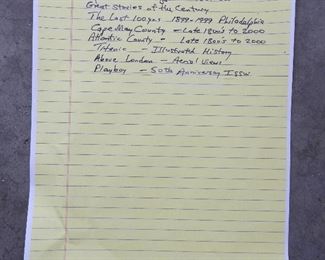 Great Stories of the Century
The Last 100 yrs 1899-1999 Philadelphia
Cape May County - Late 1800's to 2000
Atlantic County - Late 1800's to 2000
Titanic - Illustrated History
Above London - Aeriol Views
Playboy - 50th Anniversary Issue